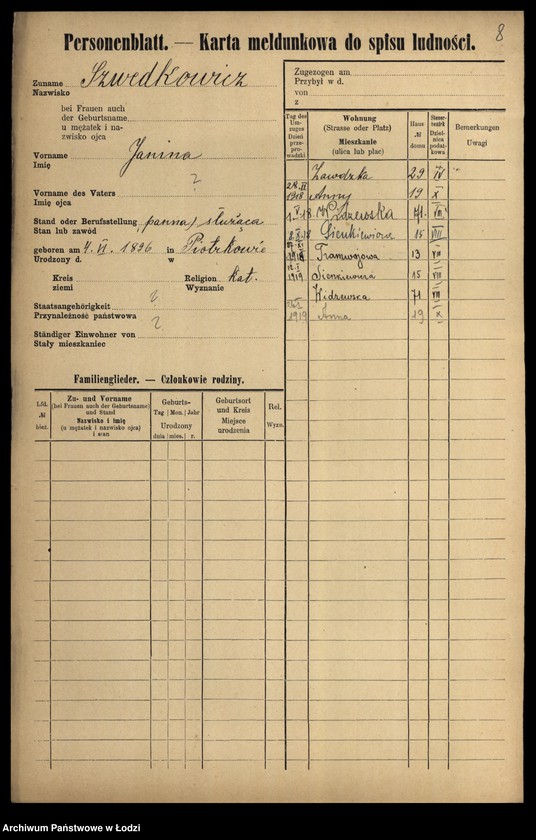 8
Personenblatt. — Karta meldunkowa do spisu ludności.
Zuname Szwedkowicz
Nazwisko
bei Frauen auch
der Geburtsname
u mężatek i na-
zwisko ojca
Vorname Janina
Imię
Vorname des Vaters ?
Imię ojca
Stand oder Berufsstellung (panna) służąca
Stan lub zawód
geboren am 4. VI. 1896 in Piotrkowie
Urodzony d. w
Kreis Religion kat.
ziemi Wyznanie
Staatsangehörigkeit ?
Przynależność państwowa
Ständiger Einwohner von ?
Stały mieszkaniec
Zugezogen am
Przybył w d.
von
z
Tag des Um-zuges Dzień prze-prowadzki | Wohnung (Strasse oder Platz) Mieszkanie (ulica lub plac) | Haus № domu | Steuer-bezirk Dziel-nica podat-kowa | Bemerkungen Uwagi
Zawodzka 29 IV
1918 Anny 19 X
18 Widzewska 71 VII
18 Sienkiewicza 15 VIII
1918 Tramwajowa 13 VII
1919 Sienkiewicza 15 VIII
Widzewska 71 VII
1919 Anna 19 X
Familienglieder. — Członkowie rodziny.
Lfd. № bież. | Zu- und Vorname (bei Frauen auch der Geburtsname) und Stand Nazwisko i imię (u mężatek i nazwisko ojca) i stan | Geburts- Tag Mon. Jahr Urodzony dnia mies. r. | Geburtsort und Kreis Miejsce urodzenia | Rel. Wyzn.
Archiwum Państwowe w Łodzi